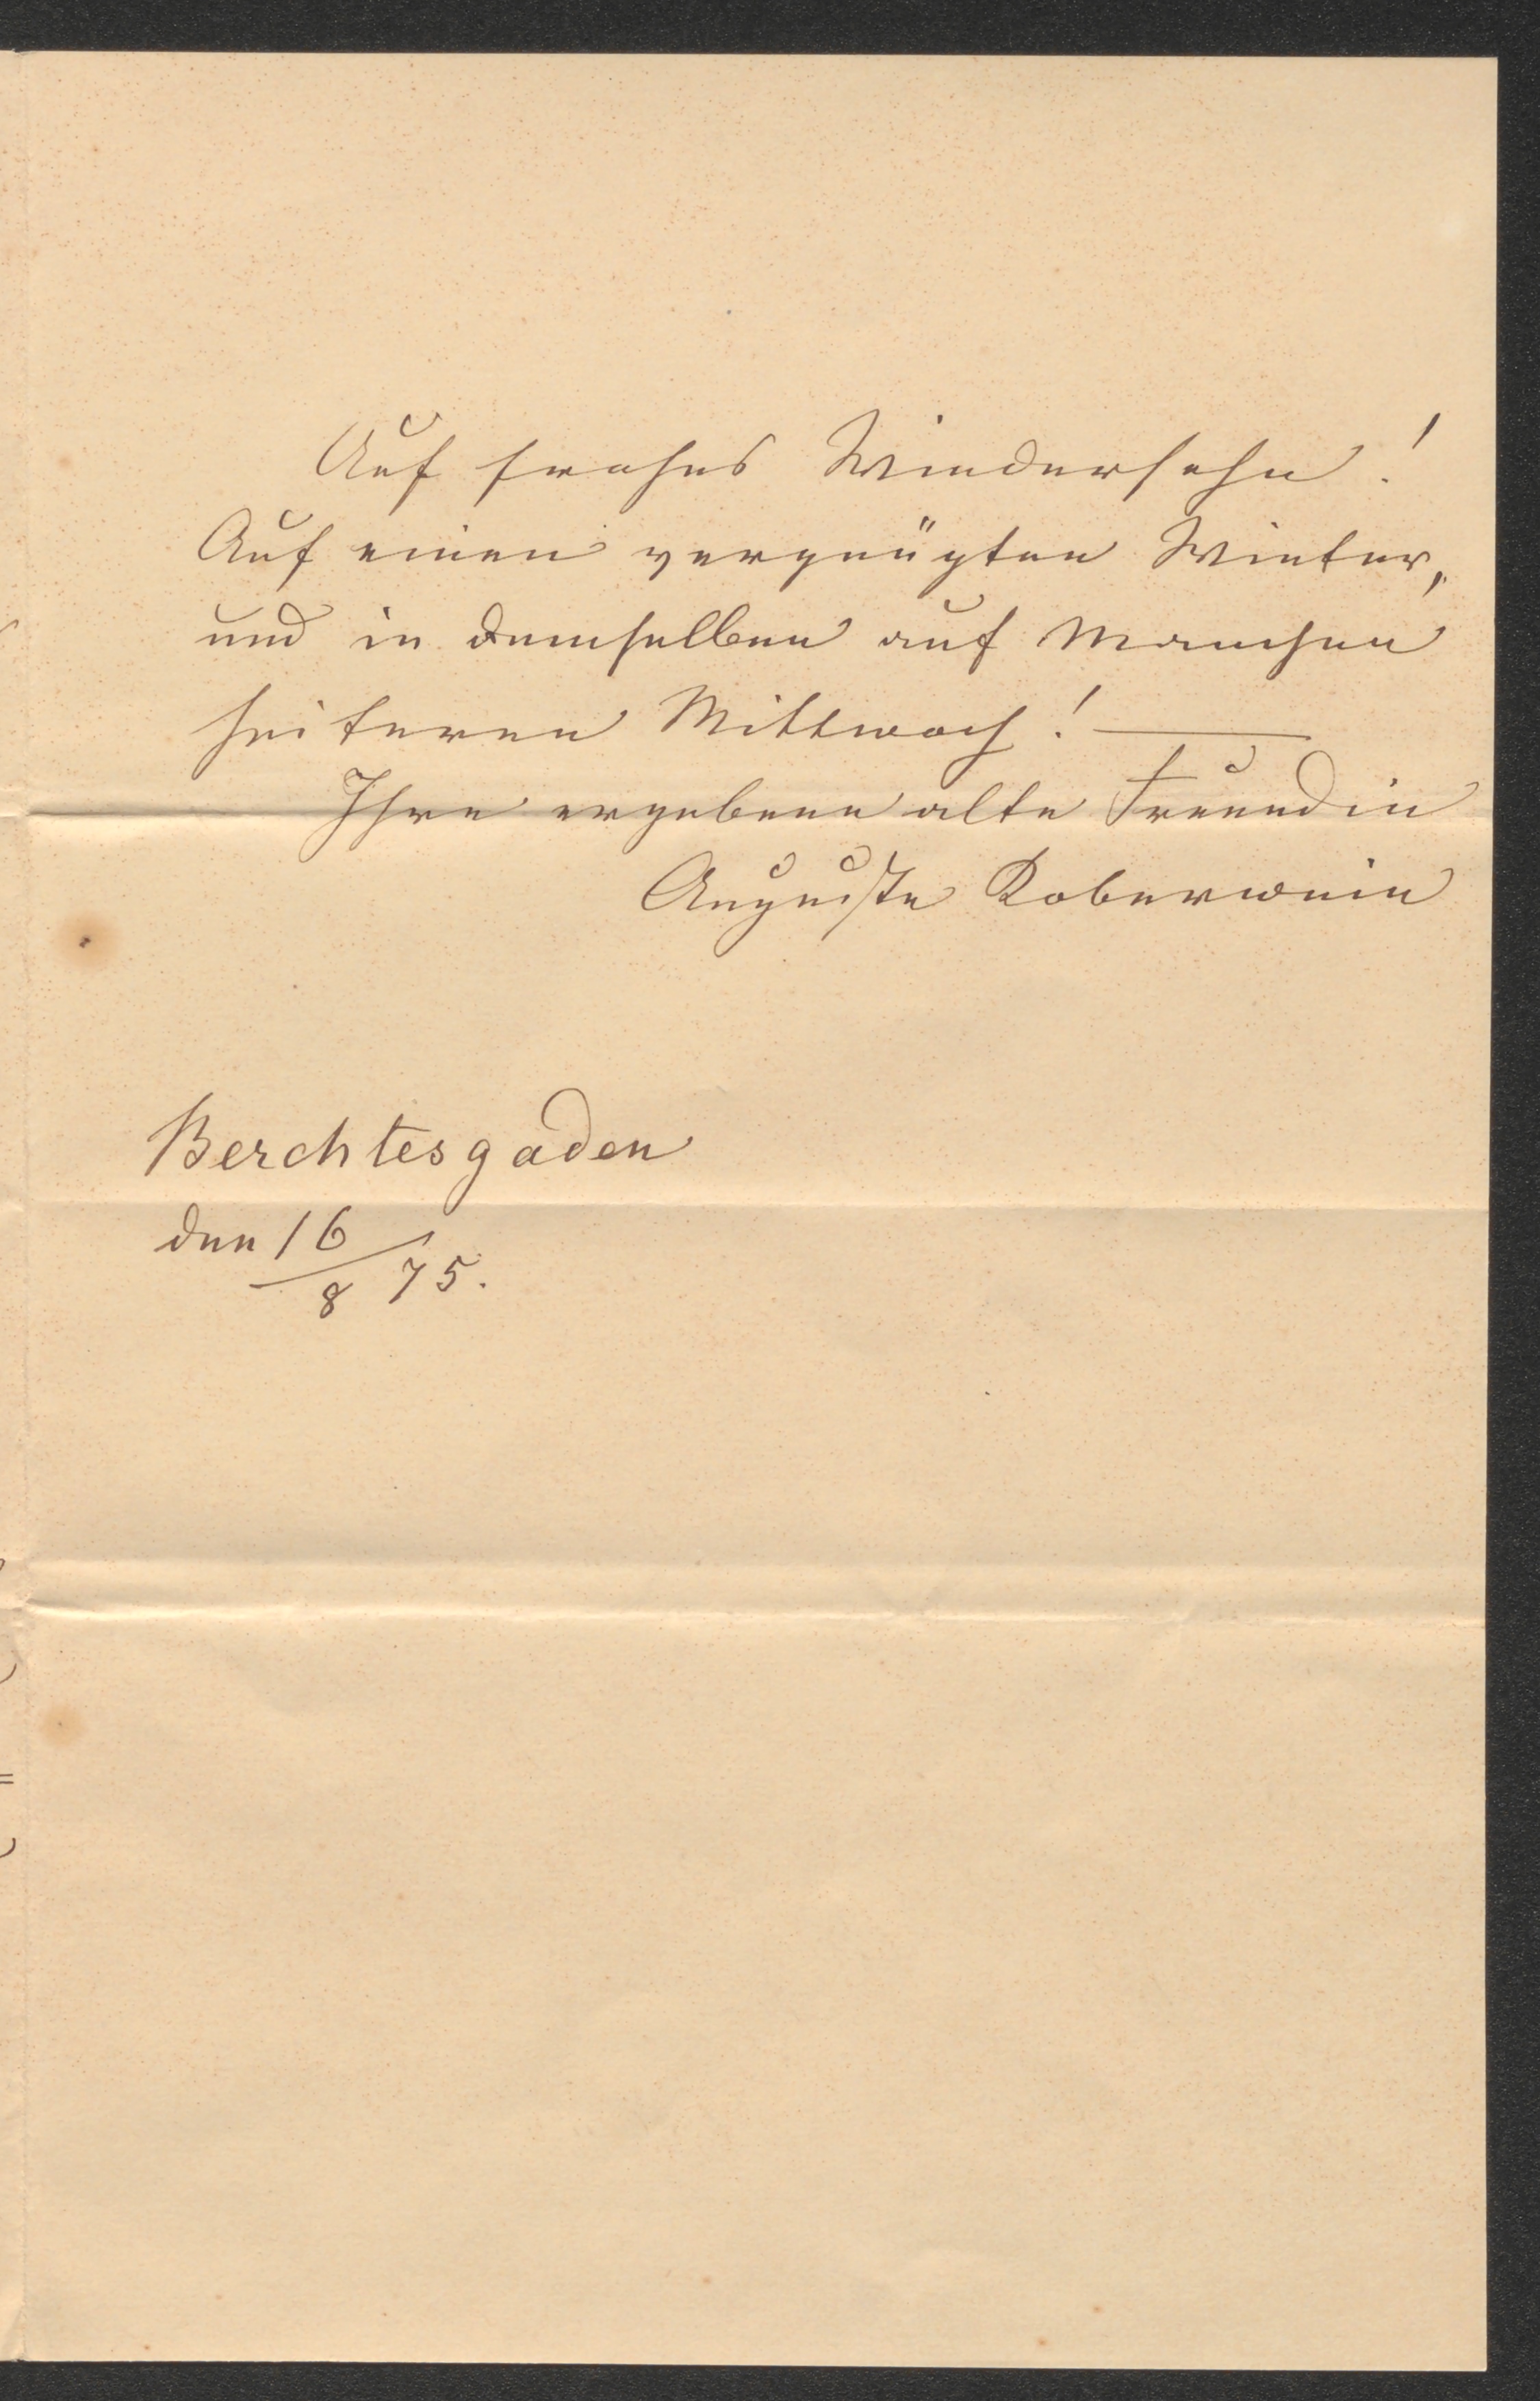 Auf frohes Wiedersehn!
Auf einen vergnügten Winter,
und in demselben auf manchen
heiteren Mittwoch! —
Ihre ergebene alte Freundin
Auguste Koberwein
Berchtesgaden
den 16/8 75.